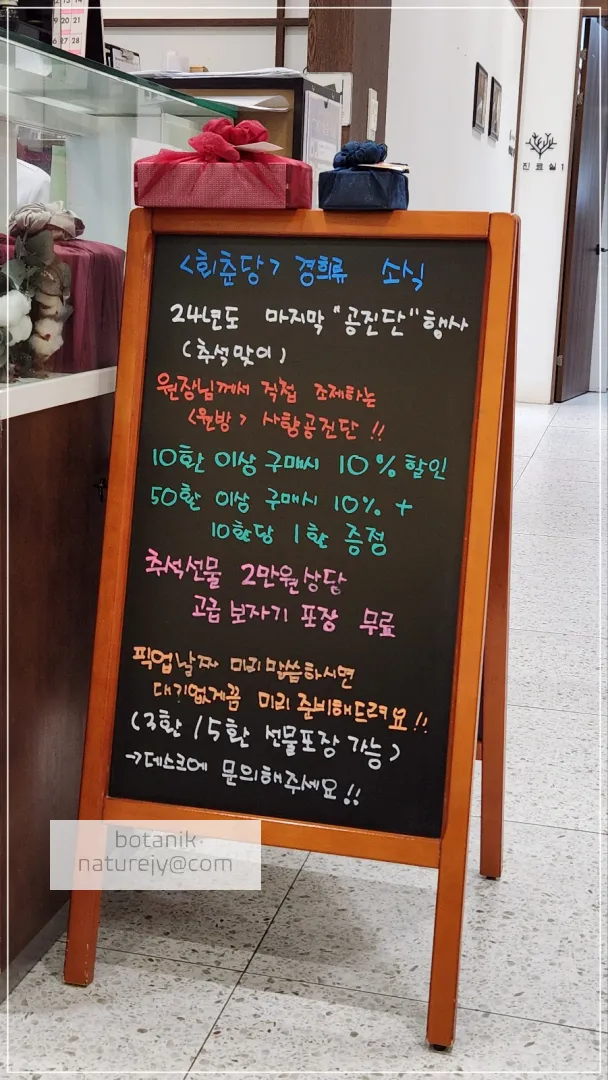 <회춘당> 경희류 소식
24년도 마지막 "공진단" 행사
(추석맞이)
원장님께서 직접 조제하는
<원방> 사향공진단 !!
10환 이상 구매시 10% 할인
50환 이상 구매시 10% +
10환당 1환 증정
추석선물 2만원상당
고급 보자기 포장 무료
픽업날짜 미리 말씀하시면
대기없게끔 미리 준비해드려요!!
(3환/5환 선물포장 가능)
→데스크에 문의해주세요!!
진료실 1
botanik
naturejy@com